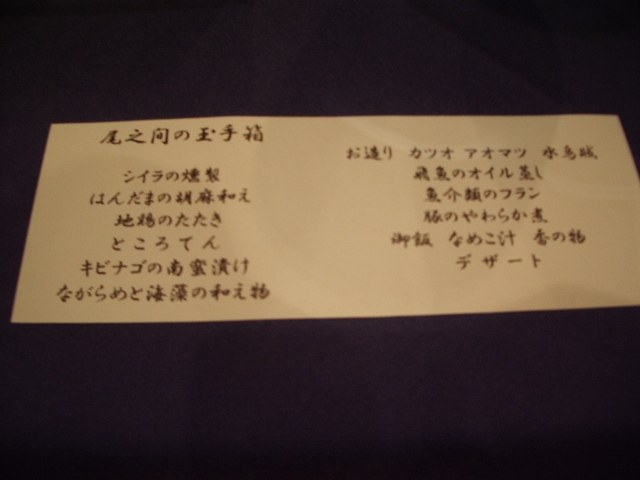 尾之间の玉手箱
シイラの燻製
はんだまの胡麻和え
地鶏のたたき
ところてん
キビナゴの南蛮漬け
ながらめと海藻の和え物
お造り カツオ アオマツ 水烏賊
飛魚のオイル蒸し
魚介類のフラン
豚のやわらか煮
御飯 なめこ汁 香の物
デザート